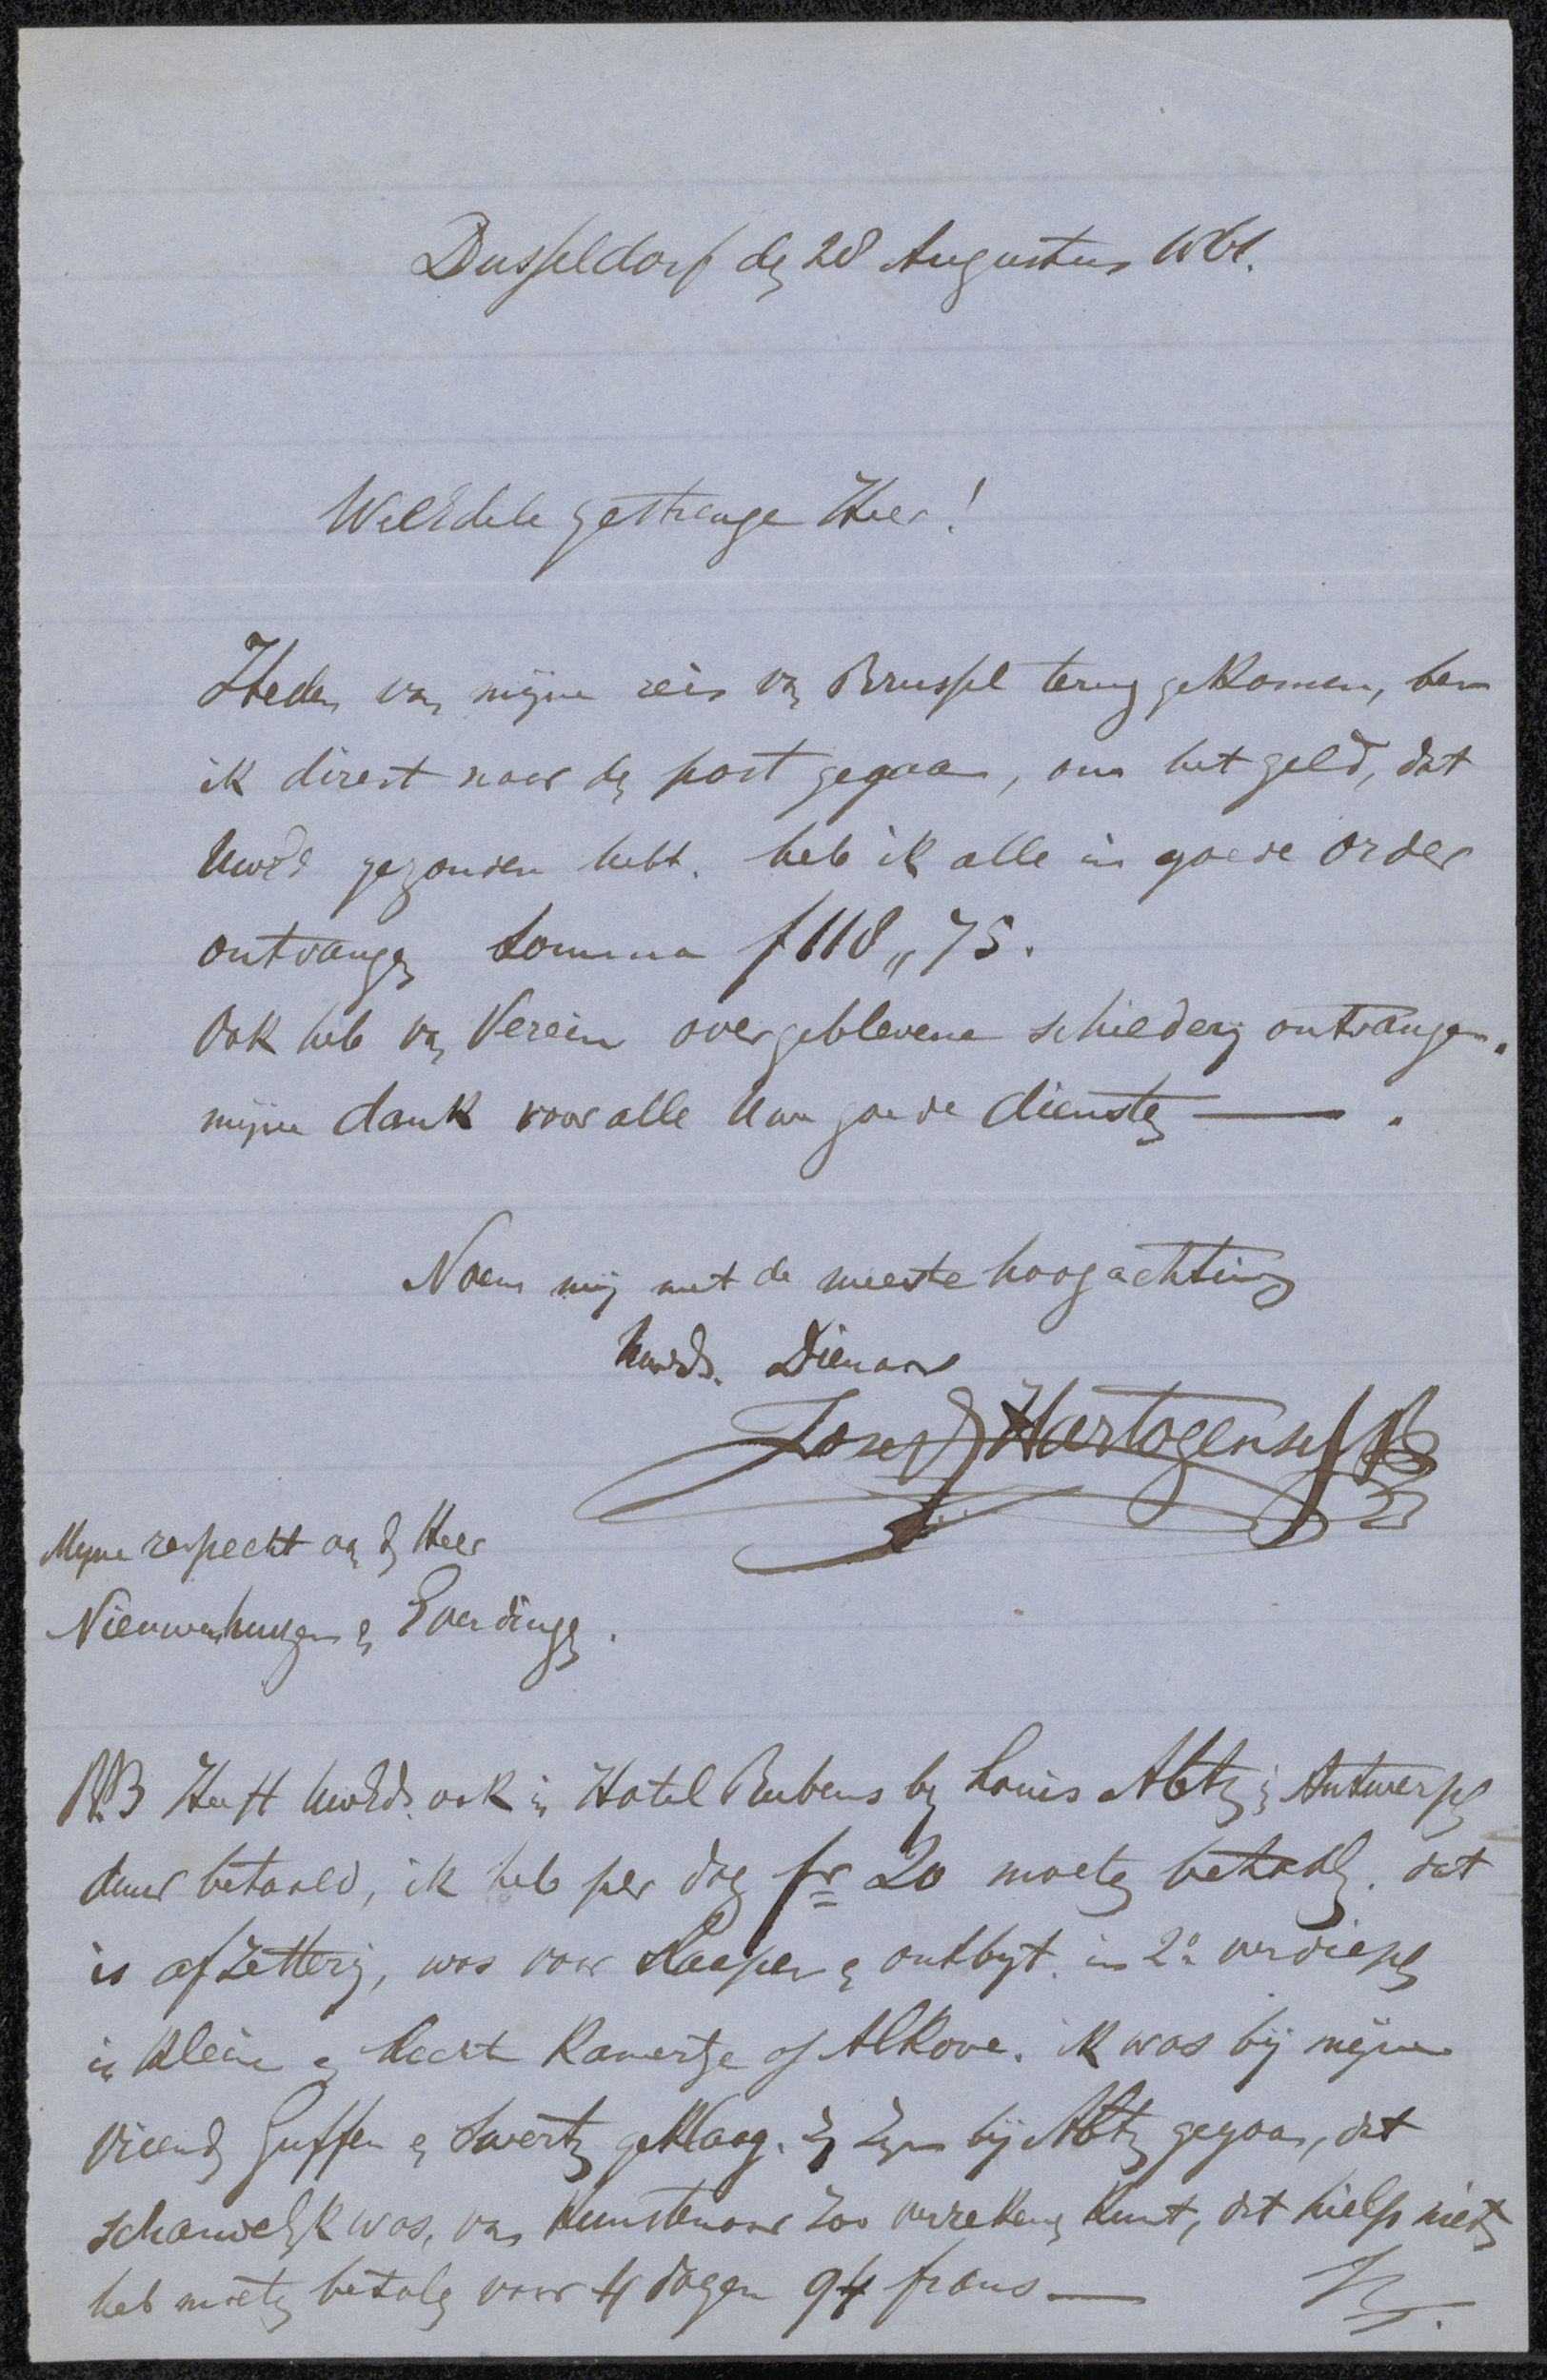 Dusseldorf den 28 Augustus 1861.
WelEdele gestrenge Heer!
Heden van mijne reis van Brussel terug gekomen, ben
ik direct naar den post gegaan, om het geld, dat
UwEd gezonden hebt. heb ik alle in goede order
ontvangen Somma f 118,,75.
Ook heb van Verein overgeblevene schilderij ontvangen.
mijne dank voor alle Uwe goede diensten — .
Noem mij met de meeste hoogachting
UwEds. Dienaar
Joseph Hartogensis
Myne respeckt aan den Heer
Nieuwenhuizen en Everdingen.
NB Heeft UwEds. ook in Hotel Rubens by Louis Abtz in Antwerpen
duur betaald, ik heb per dag fr 20 moeten betaalen. dat
is afzetterij, was voor Slaapen en ontbyt. in 2e verdiepen
in kleine en slecht kamertje of Alkove. ik was bij mijne
vrienden Guffen en Swertz geklaag. zij zyn bij Abtz gegaan, dat
schandelyk was, van Kunstenaar zoo kunt, dat hielp niets
heb moeten betalen voor 4 dagen 94 frans —